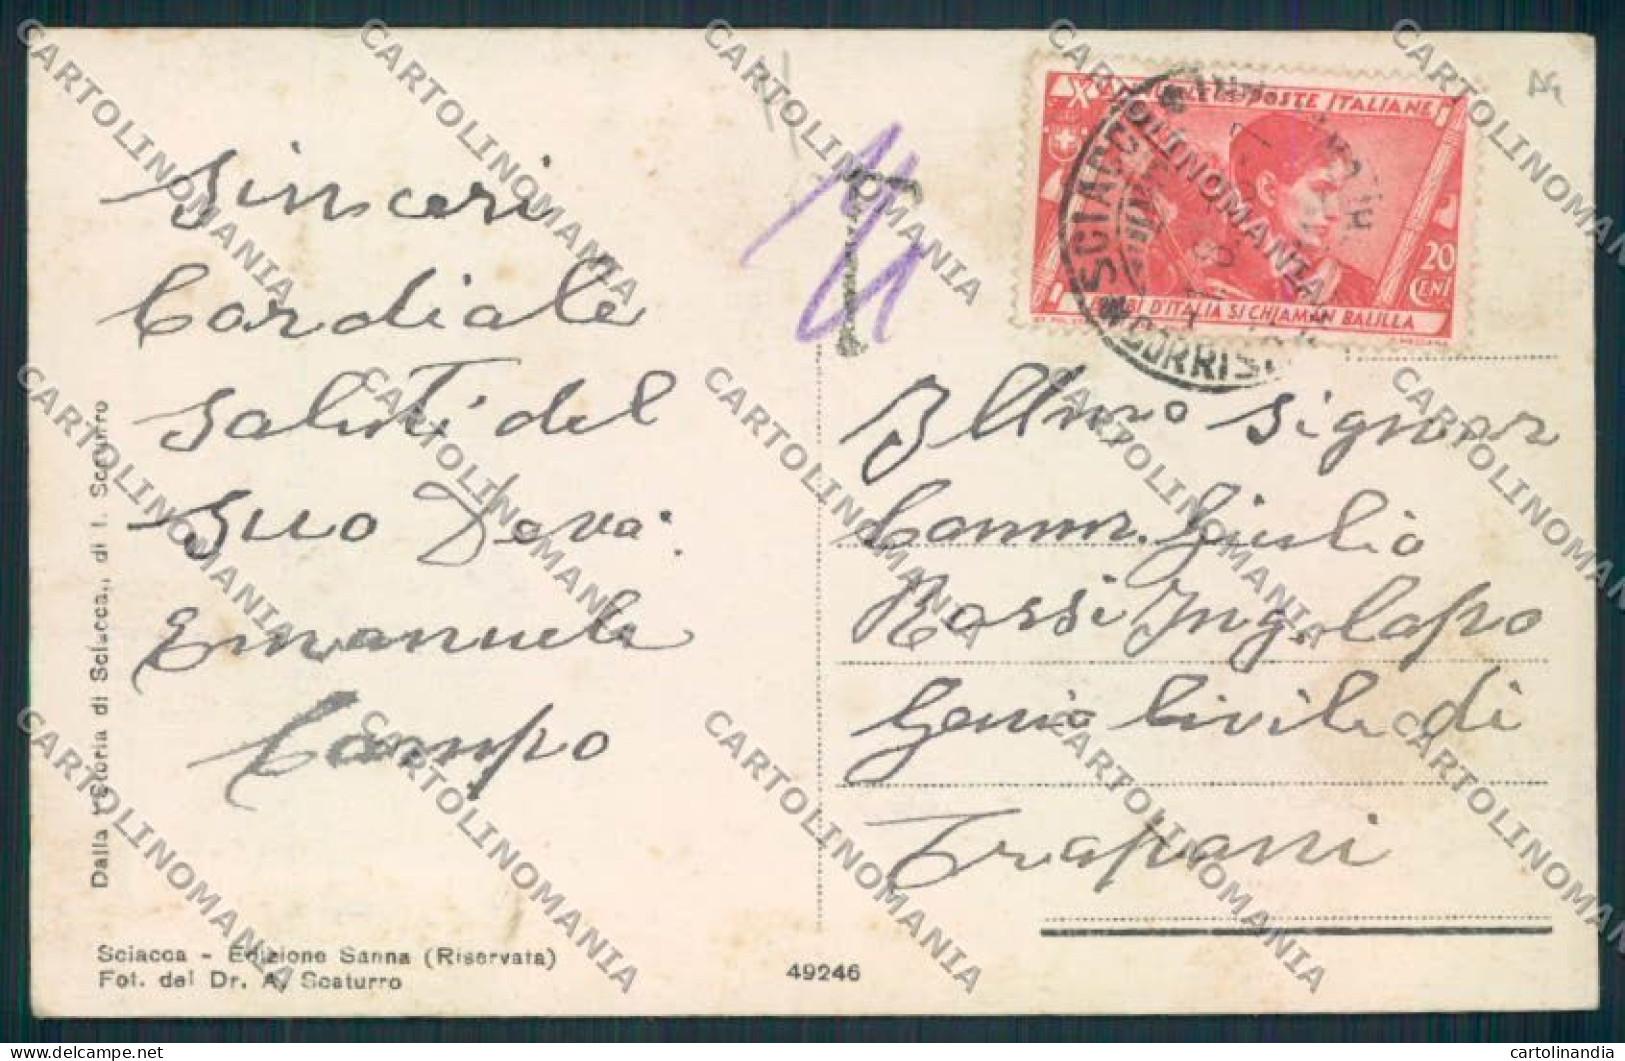 sinceri
Cordiale
saluti del
suo Deva:
Emanuele
Campo
POSTE ITALIANE
20
CENT
D'ITALIA SI CHIAMAN BALILLA
SCIACCA
CORRISP
Illmo signor
Comm. Giulio
Rossi Ing. Capo
Genio Civile di
Trapani
Dalla "Storia di Sciacca,, di I. Scaturro
Sciacca - Edizione Sanna (Riservata)
Fot. del Dr. A. Scaturro
49246
T
CARTOLINOMANIA
delcampe.net
cartolinandia